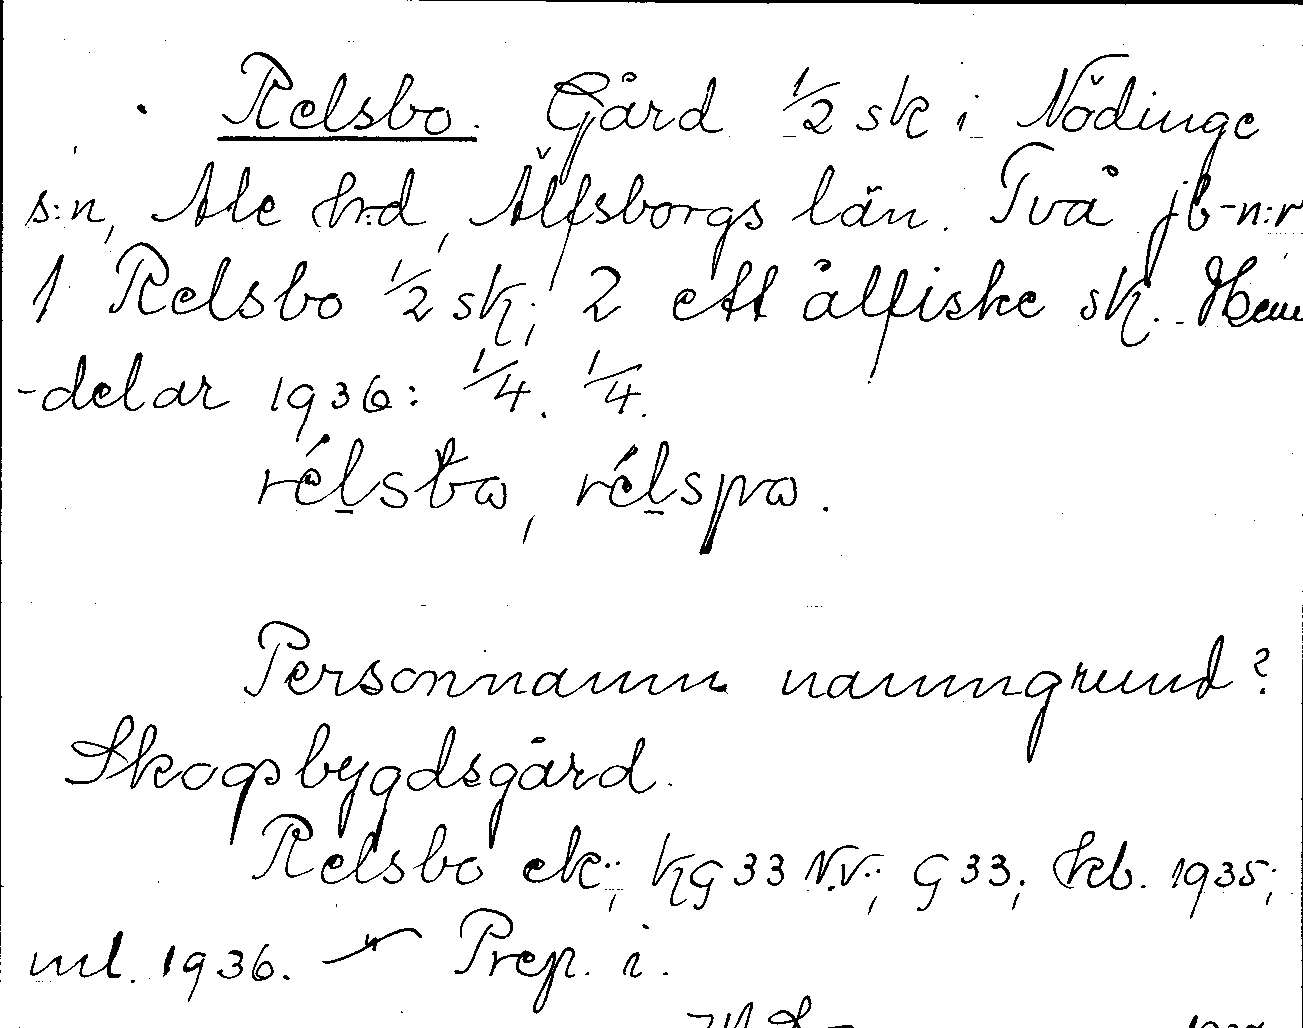 Relsbo. Gård 1/2 sk i Nödinge
s:n, Ale hrd, Älfsborgs län. Två jb-n:r
1 Relsbo 1/2 sk; 2 ett ålfiske sk. Hem
-delar 1936: 1/4. 1/4.
Personnamn namngrund?
Skogsbygdsgård.
Relsbo ek.; KG 33 N.V.; G 33; tkb. 1935;
ml. 1936. Prep. i.